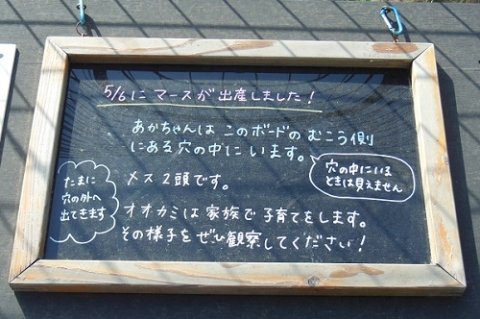 5/6に マースが 出産しました！
あかちゃんは このボードの むこう側
にある穴の中にいます。
穴の中にいる
ときは見えません
たまに
穴の外へ
出てきます
メス2頭です。
オオカミは家族で子育てをします。
その様子をぜひ観察してください！